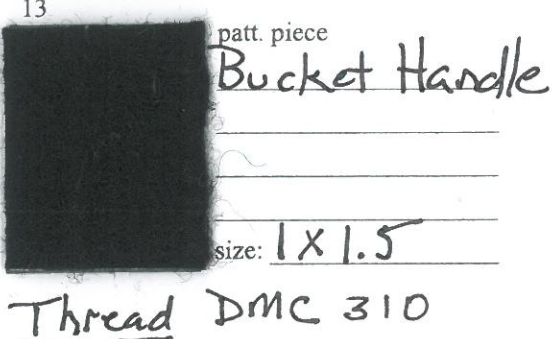 13
patt. piece
Bucket Handle
size: 1 X 1.5
Thread DMC 310